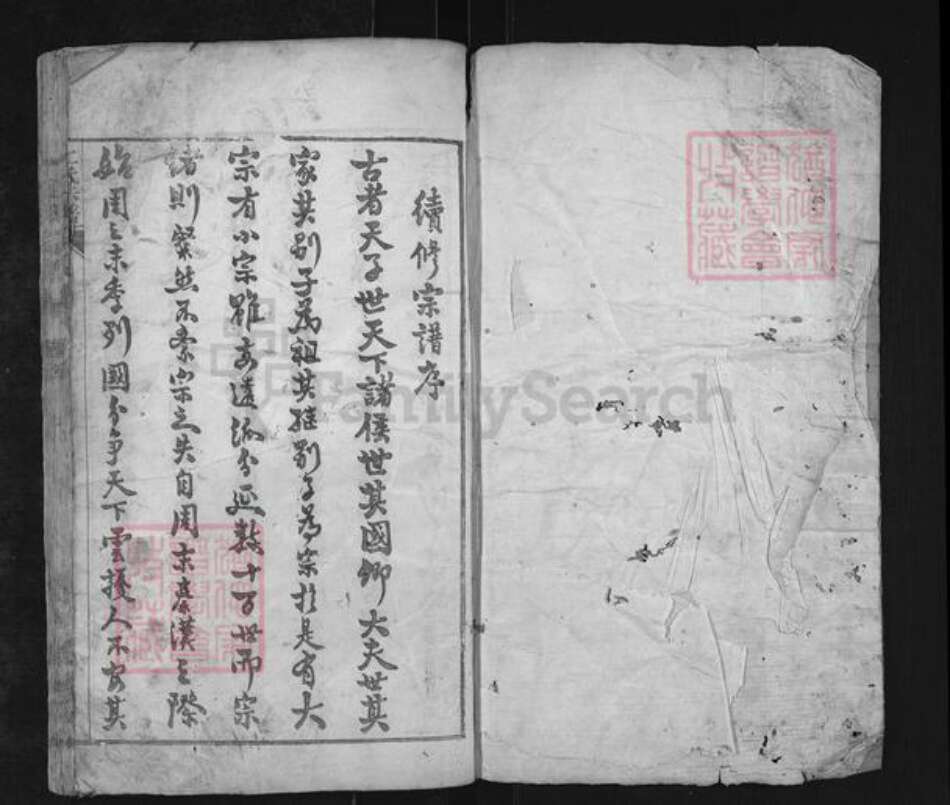 續修宗譜序
古者天子世天下諸侯世其國卿大夫世其
家其別子為祖其繼別子為宗於是有大
宗有小宗雖支遠派分延數十百世而宗
緒則粲然不紊宗之失自周末秦漢之際
始周之末季列國分爭天下雲擾人不安其
FamilySearch